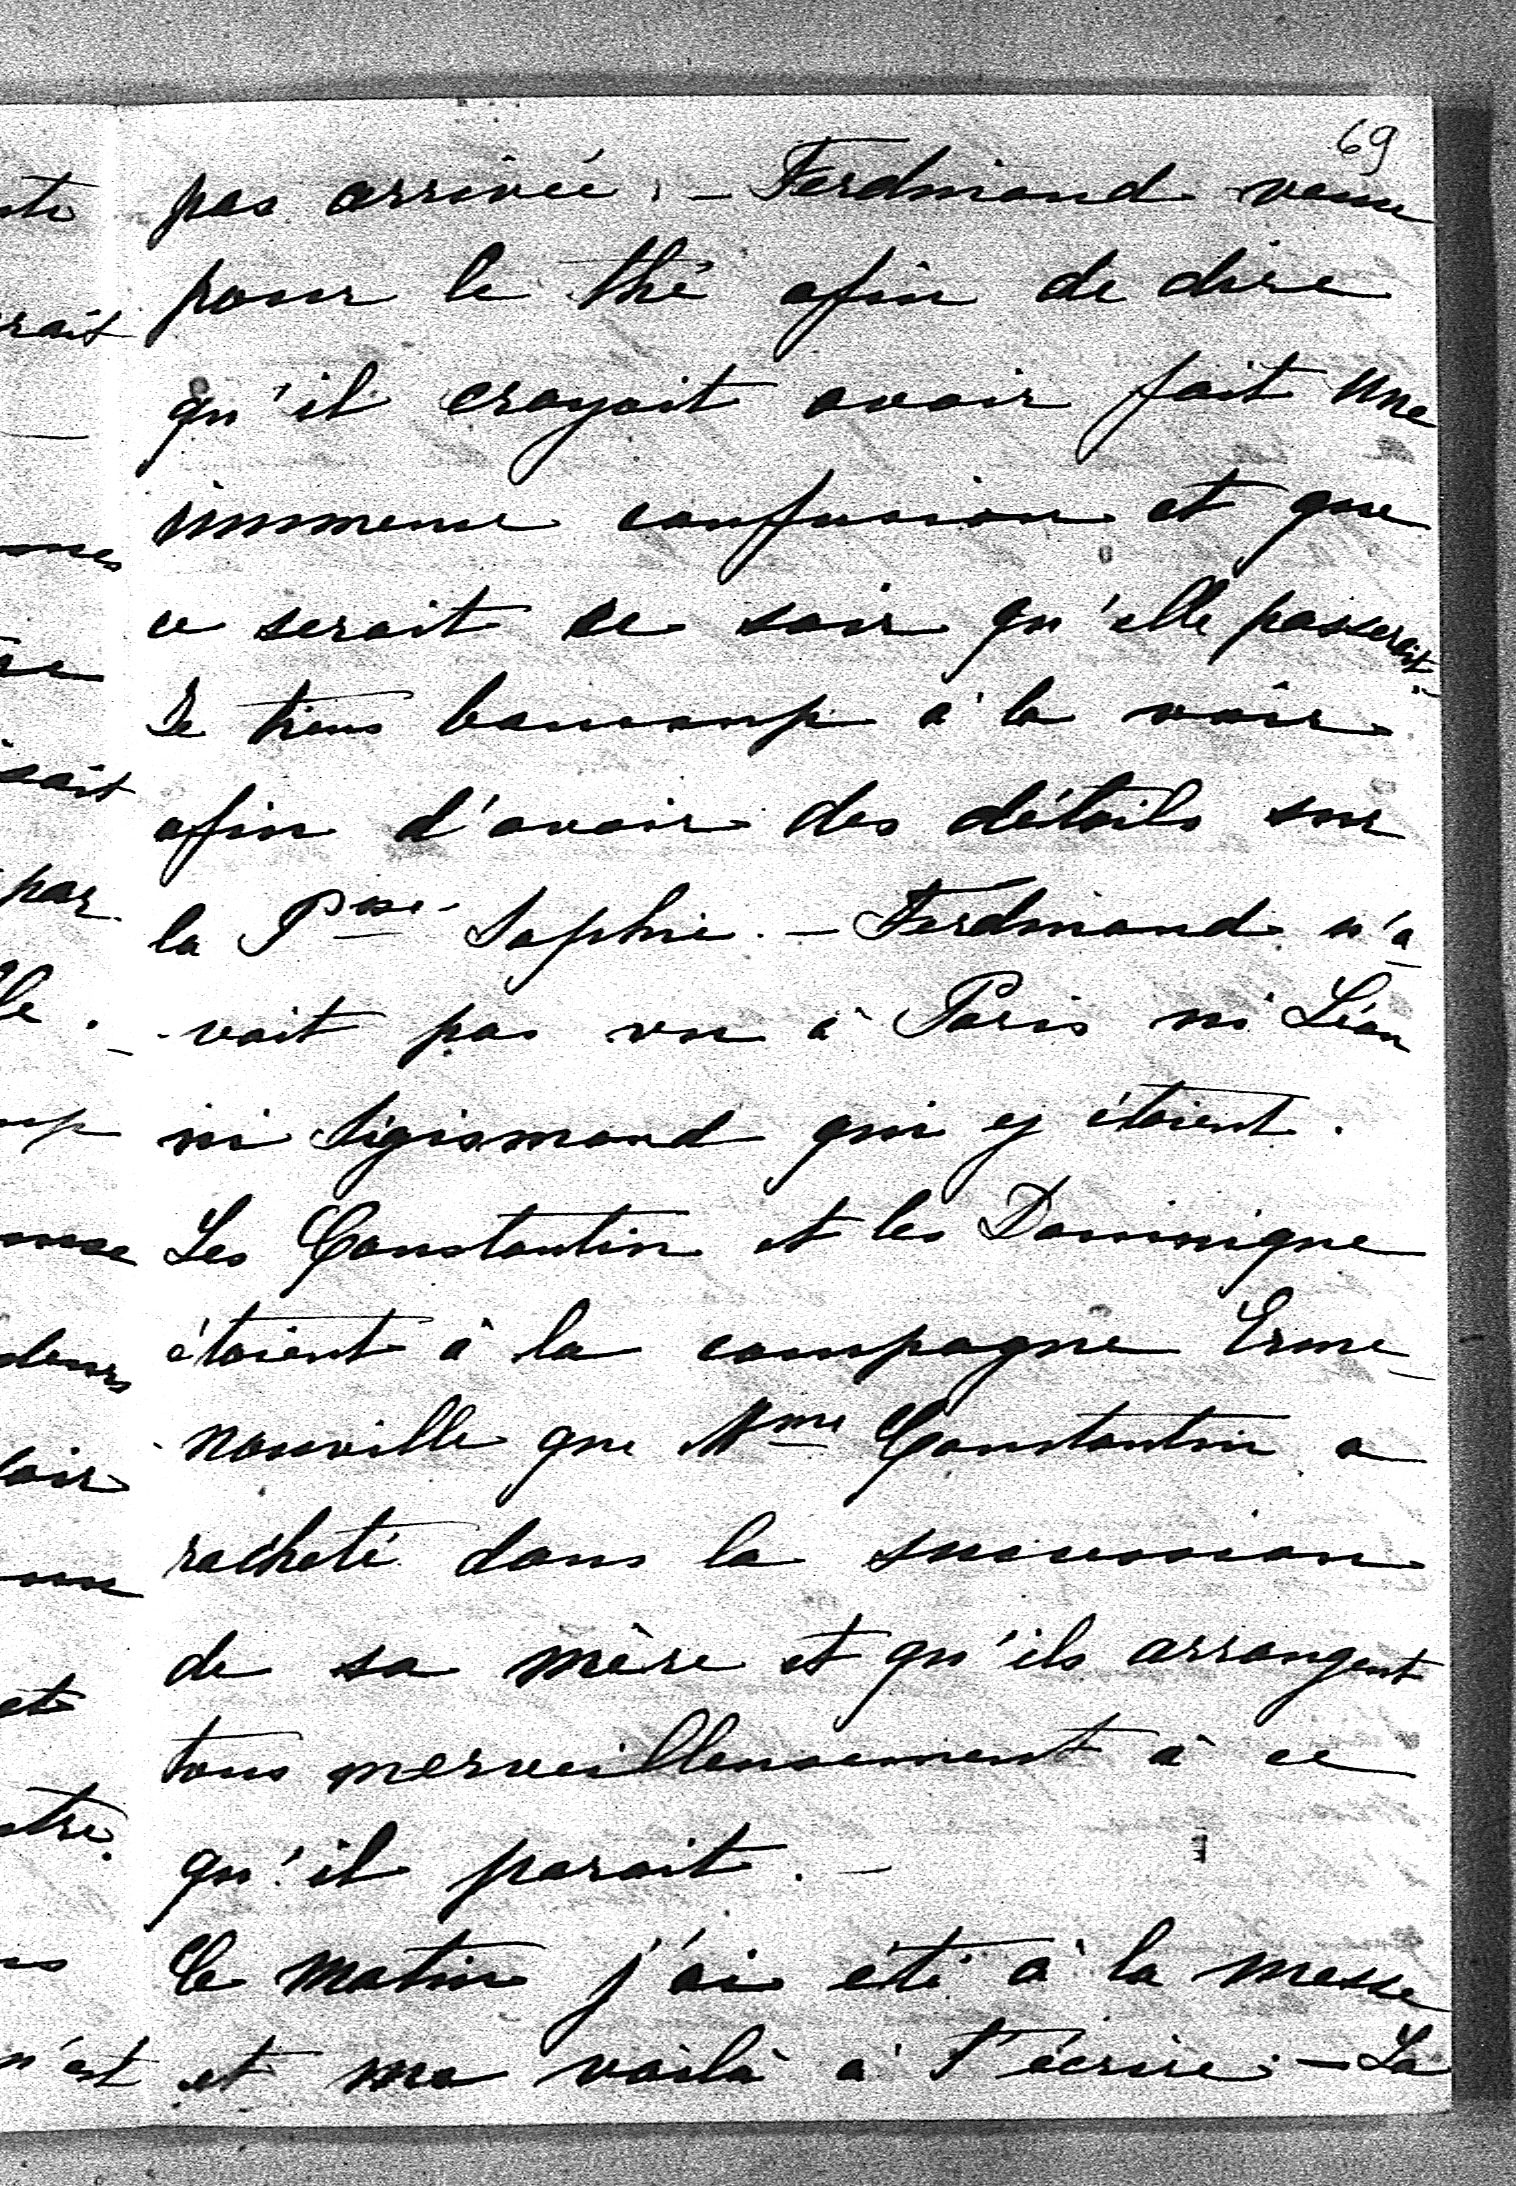 69
pas arrivée. – Ferdinand vient
pour le thé afin de dire
qu'il croyait avoir fait une
immense confusion et que
ce serait ce soir qu'elle passerait. –
Je tiens beaucoup à la voir
afin d'avoir des détails sur
la Psse Sophie. – Ferdinand n'a
-vait pas vu à Paris ni Léon
ni Sigismond qui y étaient.
Les Constantin et les Dominique
étaient à la campagne Erme-
-nonville que Mme Constantin a
racheté dans la succession
de sa mère et qu'ils arrangent
tous merveilleusement à ce
qu'il parait. –
Ce matin j'ai été à la messe
et me voilà à t'écrire. – La